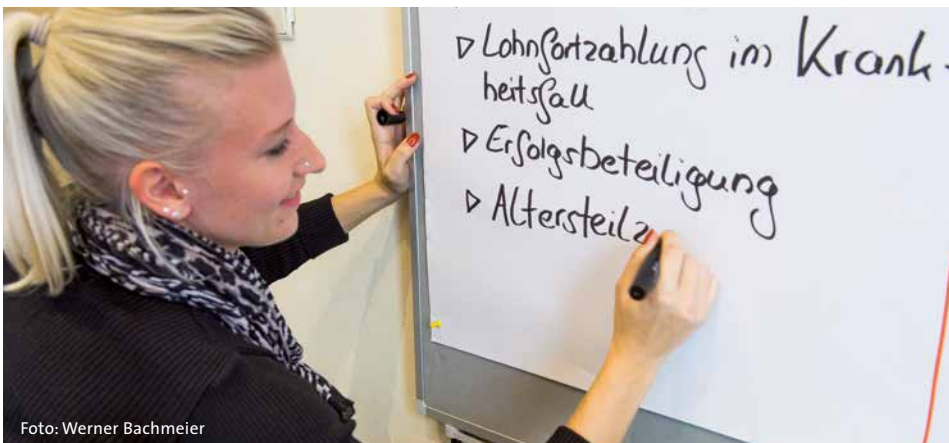 ▷ Lohnfortzahlung im Krank-
heitsfall
▷ Erfolgsbeteiligung
▷ Altersteilz
Foto: Werner Bachmeier